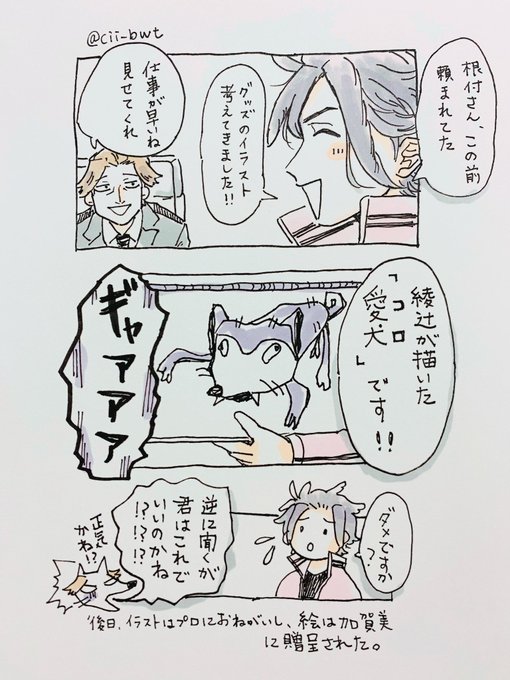 @cii-bwt
根付さん、この前
頼まれてた
グッズのイラスト
考えてきました!!
仕事が早いね
見せてくれ
綾辻が描いた
「コロ
愛犬」です!!
ギャアアア
ダメですか
?
逆に聞くが
君はこれで
いいのかね
!?!?!?
正気
かね!?
後日、イラストはプロにおねがいし、絵は加賀美
に贈呈された。